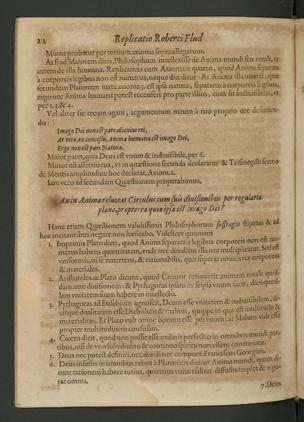 22 Replicatio Roberti Flud
Minor probatur per tertium axioma supra allegatum.
At si ad Maiorem dicis, Philosophum intellexisse de Anima mundi seu totali, et
autem de illa humana. Replicamus cum Axiomate quarto, quod Anima separata
à corporeis legibus non est numerus, neque diuiditur: At Anima illa mundi, quæ
secundum Platonem iuxta axioma 5. est ipsa natura, separatur à corporeis legibus,
ergo nec Anima humana potest recenseri pro parte illius, cum sit indiuisibilis, vt
per 2.3. & 4.
Vel aliter sic iterum agam, argumentum meum à tuo proprio ore desumendo:
Imago Dei non est pars alicuius rei,
At vero, ex concesso, anima humana est imago Dei,
Ergo non est pars Naturæ.
Maior patet, quia Deus est vnum & indiuisibile, per 6.
Minor est assertio tua, vt in quæstione secunda declaratur & Trismegisti sermo
de Mentis amplitudine hoc declarat. Axiom. 2.
Iam vero ad secundam Quæstionem properabimus,
An in Anima reluceat Circulus cum suis diuisionibus per regularia
plana, propterea quia ipsa est imago Dei?
Hanc etiam Quæstionem validissimis Philosophorum suffragiis stipatus & ad
hoc incitantibus negare non hæsitabo. Videlicet quoniam
1. Imprimis Plato dicit, quod Anima separata à legibus corporeis non est numerus
habens quantitatem, vnde nec diuiditur illa nec multiplicatur. Sed est
vniformis, in se reuertens, & rationabilis, quæ superat cunctas res corporeas
& materiales.
2. Aristoteles ac Plato dicunt, quod Creator retinuerit animam totale quiddam
ante diuisionem: & Pythagoras ipsum in seipsa vnum facit, dicitque illam
vnitatem suum habere in intellectu.
3. Pythagoras ad Eusebium agnoscit, Deum esse vnitatem & indiuisibilem, dicitque
dualitatem esse Diabolum & malum, quippe in qua est multitudo &
materialitas. Et Plato vult omne bonum esse per vnum; at Malum vult esse
propter multitudinem confusum.
4. Cicero dicit, quod non posset esse ordinis perfectio in omnibus mundi partibus,
nisi de vno solo diuino & continuo spiritu non essent continuatæ.
5. Deus nec potest definiri, nec diuidi nec componi. Franciscus Georgius.
6. Deus infusus in omnibus rebus à Platonicis dicitur Anima mundi, quam dicunt
rationem habere totius, quatenus vniuersaliter diffusus implet & vigorat
omnia.
7. Deus